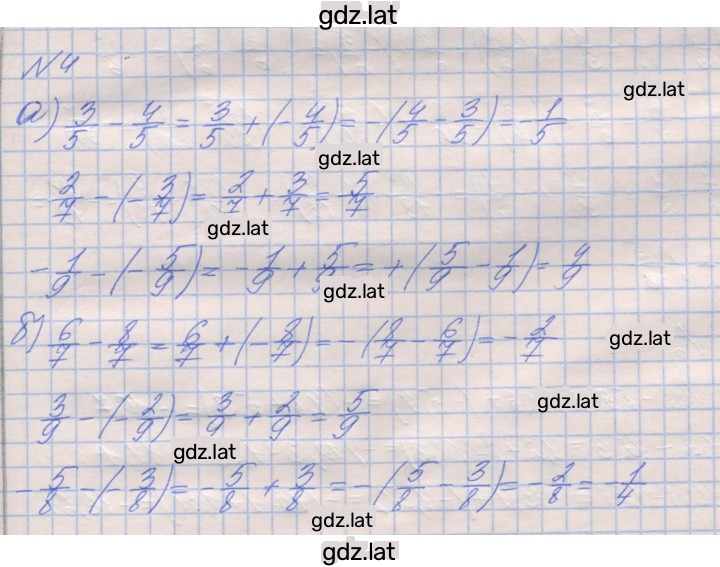 gdz.lat
№4
gdz.lat
а) 3/5 - 4/5 = 3/5 + (-4/5) = -(4/5 - 3/5) = -1/5
gdz.lat
2/7 - (-3/7) = 2/7 + 3/7 = 5/7
gdz.lat
-1/9 - (-5/9) = -1/9 + 5/9 = +(5/9 - 1/9) = 4/9
gdz.lat
б) 6/7 - 8/7 = 6/7 + (-8/7) = -(8/7 - 6/7) = -2/7
gdz.lat
gdz.lat
3/9 - (-2/9) = 3/9 + 2/9 = 5/9
gdz.lat
-5/8 - (-3/8) = -5/8 + 3/8 = -(5/8 - 3/8) = -2/8 = -1/4
gdz.lat
gdz.lat